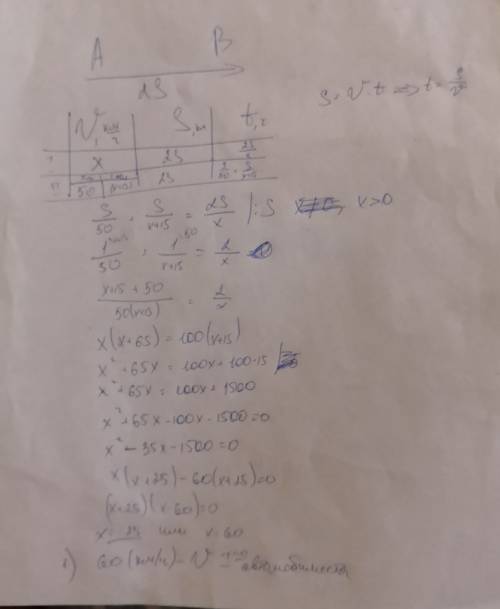 A B
2S
S = V · t => t = S/V
V, км/ч S, км t, ч
I x 2S 2S/x
II 50 (x+15) 2S S/50 + S/(x+15)
S/50 + S/(x+15) = 2S/x |:S x>0
1/50 + 1/(x+15) = 2/x
(x+15+50)/(50(x+15)) = 2/x
x(x+65) = 100(x+15)
x² + 65x = 100x + 100·15
x² + 65x = 100x + 1500
x² + 65x - 100x - 1500 = 0
x² - 35x - 1500 = 0
x(x+25) - 60(x+25) = 0
(x+25)(x-60) = 0
x = -25 или x = 60
1) 60 (км/ч) - V автомобилиста